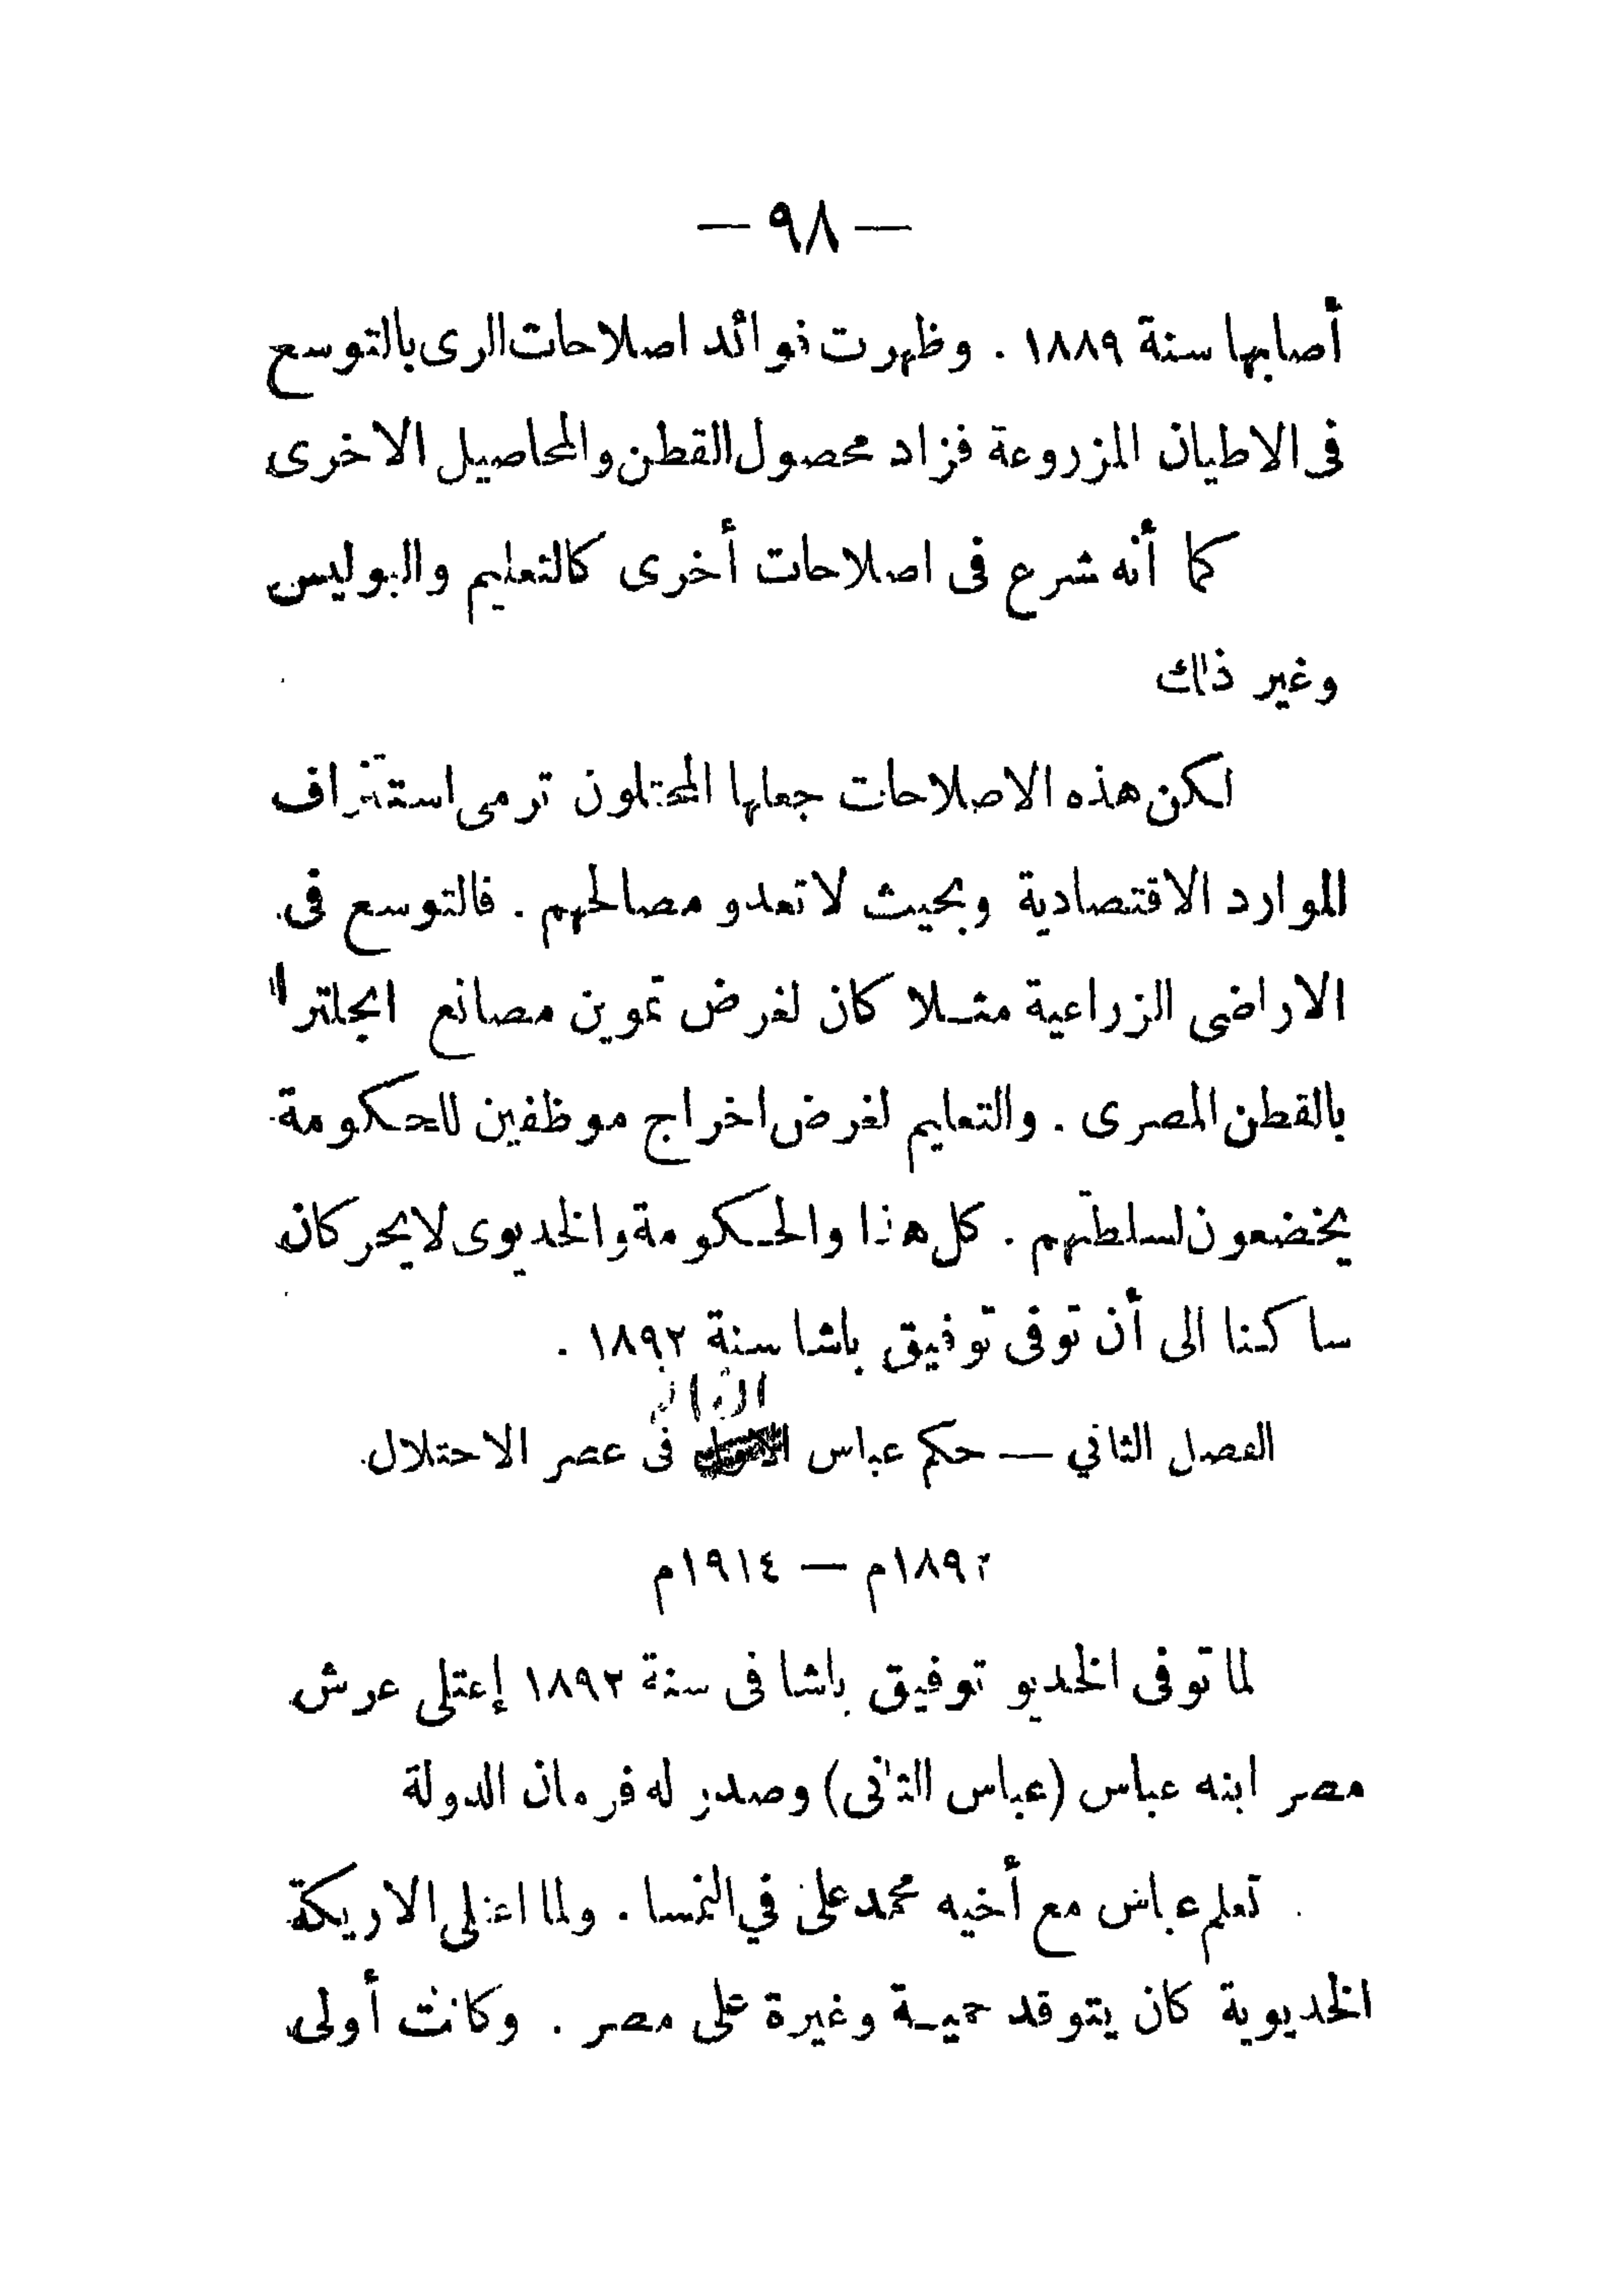 — ٩٨ —
أصابها سنة ١٨٨٩ . وظهرت فوائد اصلاحات الرى بالتوسع
فى الاطيان المزروعة فزاد محصول القطن والمحاصيل الاخرى
كما أنه شرع فى اصلاحات أخرى كالتعليم والبوليس
وغير ذلك
لكن هذه الاصلاحات جعلها المحتلون ترمى استنزاف
الموارد الاقتصادية وبحيث لا تعدو مصالحهم . فالتوسع فى
الاراضى الزراعية مثلا كان لغرض تموين مصانع انجلترا
بالقطن المصرى . والتعليم لغرض اخراج موظفين للحكومة
يخضعون لسلطتهم . كل هذا والحكومة والخديوى لا يحركان
ساكنا الى أن توفى توفيق باشا سنة ١٨٩٢ .
الثانى
الفصل الثاني — حكم عباس الاول فى عصر الاحتلال
١٨٩٢م — ١٩١٤م
لما توفى الخديو توفيق باشا فى سنة ١٨٩٢ إعتلى عرش
مصر ابنه عباس (عباس الثانى) وصدر له فرمان الدولة
تعلم عباس مع أخيه محمد على في النمسا . ولما اعتلى الاريكة
الخديوية كان يتوقد حمية وغيرة على مصر . وكانت أولى